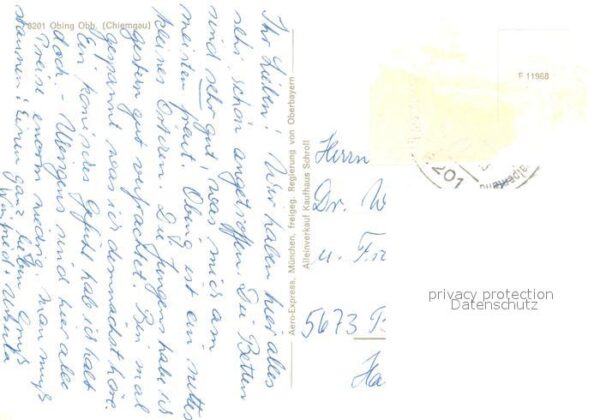 8201 Obing Obb. (Chiemgau)
Ihr Lieben! Wir haben hier alles
sehr schön angetroffen. Die Betten
sind sehr gut, was mich am
meisten freut. Obing ist ein nettes
kleines Örtchen. Die Jungens habe ich
gestern gut verfrachtet. Bin mal
gespannt was ich demnächst höre.
Ein komisches Gefühl hab ich halt
doch. Übrigens sind hier alle
Preise enorm niedrig, man muß
staunen! Einen ganz lieben Gruß
Winfried + Ursula
Aero-Express, München, freigeg. Regierung von Oberbayern
Alleinverkauf Kaufhaus Schroll
F 11968
8201
Herrn
Dr. W
u. Fr
5673
Ha
privacy protection
Datenschutz